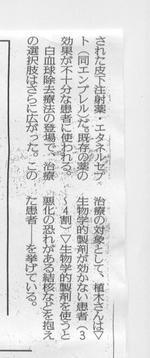 された皮下注射薬・エタネルセプ
ト（同エンブレル）だ。既存の薬の
効果が不十分な患者に使われる。
白血球除去療法の登場で、治療
の選択肢はさらに広がった。この
治療の対象として、植木さんは▽
生物学的製剤が効かない患者（3
〜4割）▽生物学的製剤を使うと
悪化の恐れがある結核などを抱え
た患者――を挙げている。